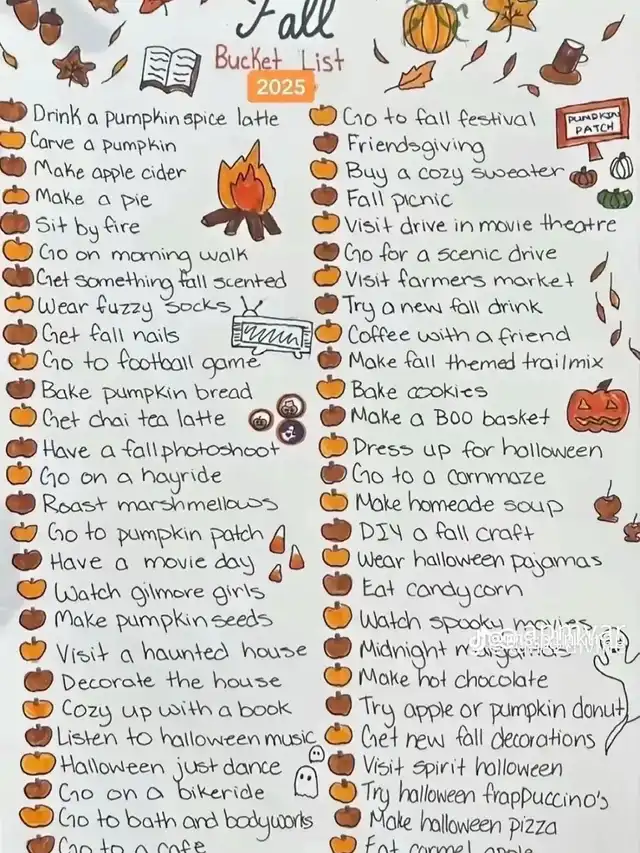 Fall
Bucket List
2025
Drink a pumpkin spice latte
Carve a pumpkin
Make apple cider
Make a pie
Sit by fire
Go on morning walk
Get something fall scented
Wear fuzzy socks
Get fall nails
Go to football game
Bake pumpkin bread
Get chai tea latte
Have a fall photoshoot
Go on a hayride
Roast marshmellows
Go to pumpkin patch
Have a movie day
Watch gilmore girls
Make pumpkin seeds
Visit a haunted house
Decorate the house
Cozy up with a book
Listen to halloween music
Halloween just dance
Go on a bikeride
Go to bath and bodyworks
Go to a cafe
PUMPKIN
PATCH
Go to fall festival
Friendsgiving
Buy a cozy sweater
Fall picnic
Visit drive in movie theatre
Go for a scenic drive
Visit farmers market
Try a new fall drink
Coffee with a friend
Make fall themed trailmix
Bake cookies
Make a BOO basket
Dress up for halloween
Go to a cornmaze
Make homeade soup
DIY a fall craft
Wear halloween pajamas
Eat candycorn
Watch spooky movies
Midnight
Make hot chocolate
Try apple or pumpkin donut
Get new fall decorations
Visit spirit halloween
Try halloween frappuccino's
Make halloween pizza
Eat caramel apple